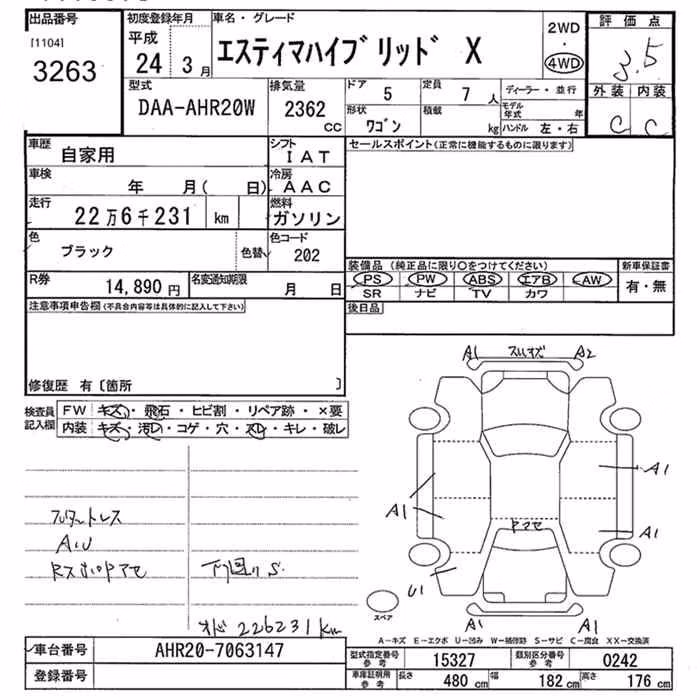 出品番号
[1104]
3263
初度登録年月
平成
24 3月
車名・グレード
エスティマハイブリッド X
2WD
・
4WD
評価点
3.5
外装 内装
C C
型式
DAA-AHR20W
排気量
2362
CC
ドア
5
定員
7 人
形状
ワゴン
積載
kg
ディーラー・並行
モデル年式 年
ハンドル 左・右
車歴
自家用
シフト
IAT
車検
年 月( 日)
冷房
AAC
走行
22万6千231 km
燃料
ガソリン
色
ブラック
色替
色コード
202
R券
14,890 円
名変通知期限
月 日
セールスポイント(正常に機能するものに限ります)
装備品 (純正品に限り○をつけてください)
PS PW ABS エアB AW
SR ナビ TV カワ
新車保証書
有・無
後日品
注意事項申告欄(不具合内容等は具体的に記入して下さい)
修復歴 有〔箇所 〕
検査員
記入欄
FW キズ・飛石・ヒビ割・リペア跡・×要
内装 キズ・汚レ・コゲ・穴・スレ・キレ・破レ
A1 A2
A1
A1
A1
Rマセ
U1
A1 A1
スペア
A/U
下回りS.
オド 226231 km
A-キズ E-エクボ U-凹み W-補修跡 S-サビ C-腐食 XX-交換済
車台番号
AHR20-7063147
登録番号
型式指定番号
参考
15327
類別区分番号
参考
0242
車庫証明用
参考
長さ 480 cm 幅 182 cm 高さ 176 cm